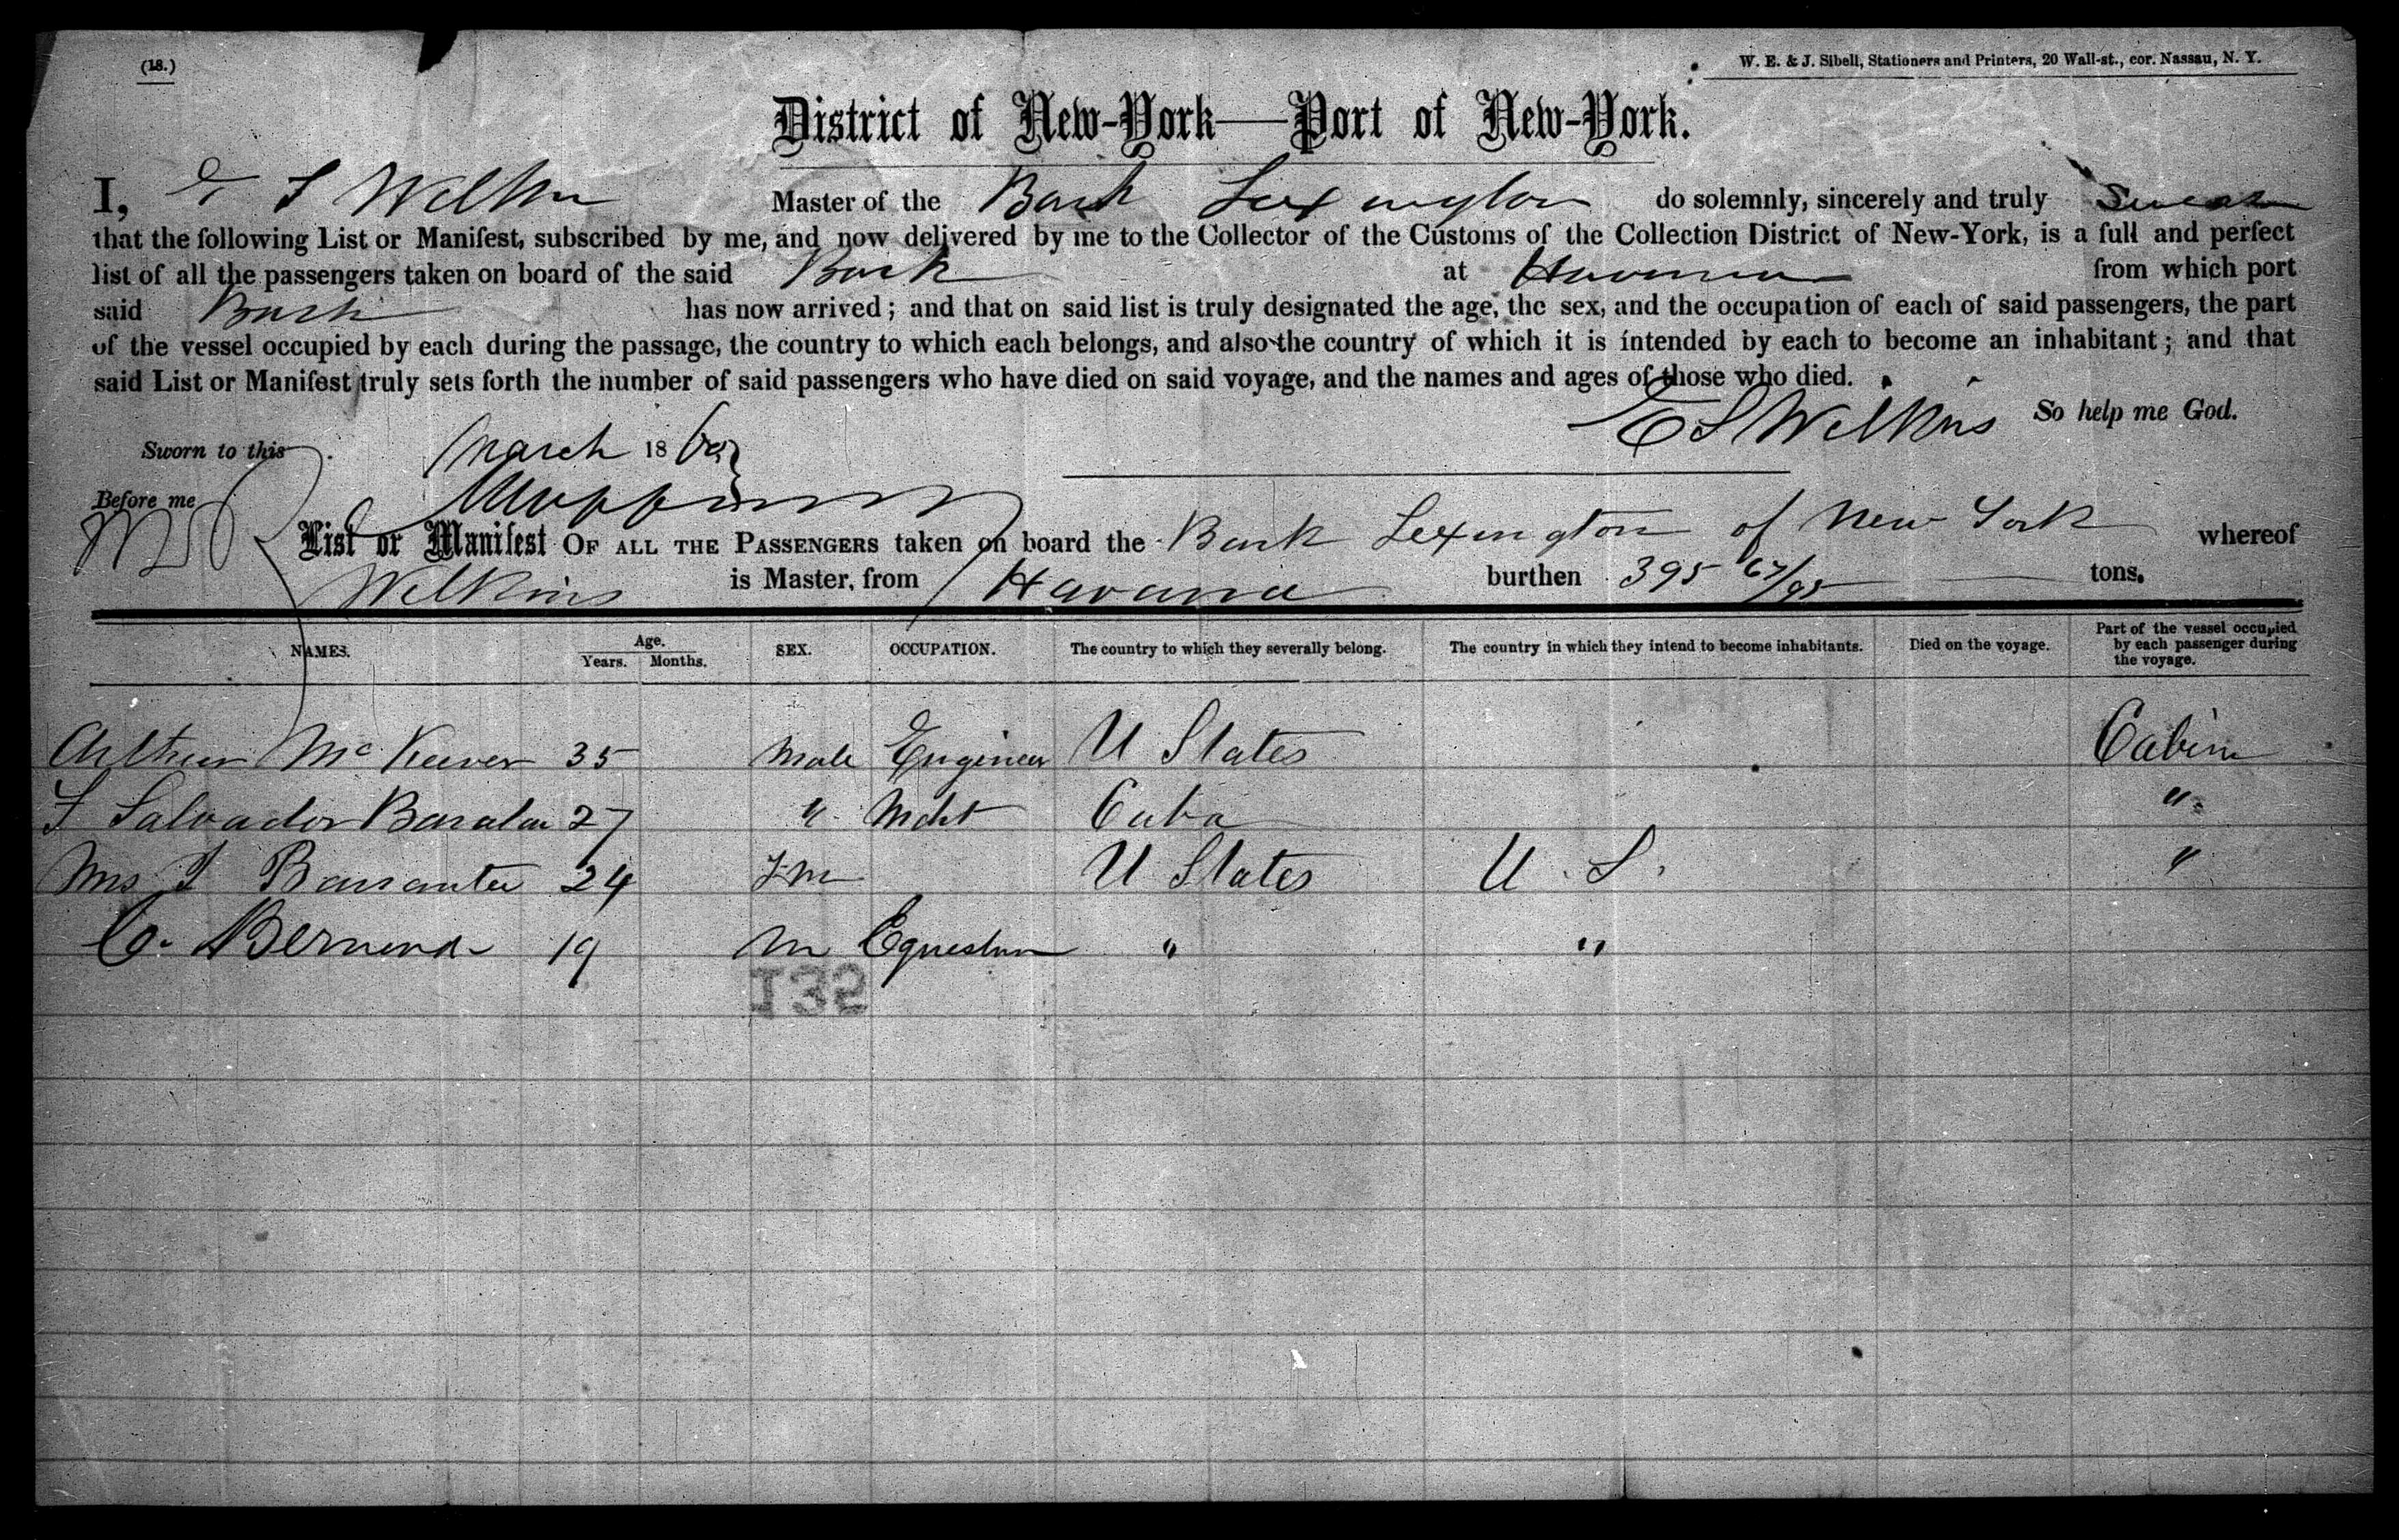 (18.)
W. E. & J. Sibell, Stationers and Printers, 20 Wall-st., cor. Nassau, N. Y.
District of New-York—Port of New-York.
I, E S Wilkins Master of the Bark Lexington do solemnly, sincerely and truly Swear
that the following List or Manifest, subscribed by me, and now delivered by me to the Collector of the Customs of the Collection District of New-York, is a full and perfect
list of all the passengers taken on board of the said Bark at Havana from which port
said Bark has now arrived; and that on said list is truly designated the age, the sex, and the occupation of each of said passengers, the part
of the vessel occupied by each during the passage, the country to which each belongs, and also the country of which it is intended by each to become an inhabitant; and that
said List or Manifest truly sets forth the number of said passengers who have died on said voyage, and the names and ages of those who died.
E S Wilkins So help me God.
Sworn to this March 1860
Before me
List or Manifest OF ALL THE PASSENGERS taken on board the Bark Lexington of New York whereof
Wilkins is Master, from Havana burthen 395 67/95 tons.
NAMES. Age. Years. Months. SEX. OCCUPATION. The country to which they severally belong. The country in which they intend to become inhabitants. Died on the voyage. Part of the vessel occupied by each passenger during the voyage.
Arthur McKeever 35 Male Engineer U States Cabin
F Salvador 27 " Mcht Cuba "
Mrs F 24 Fm U States U. S. "
C. Bernard 19 M Equestrian " "
132